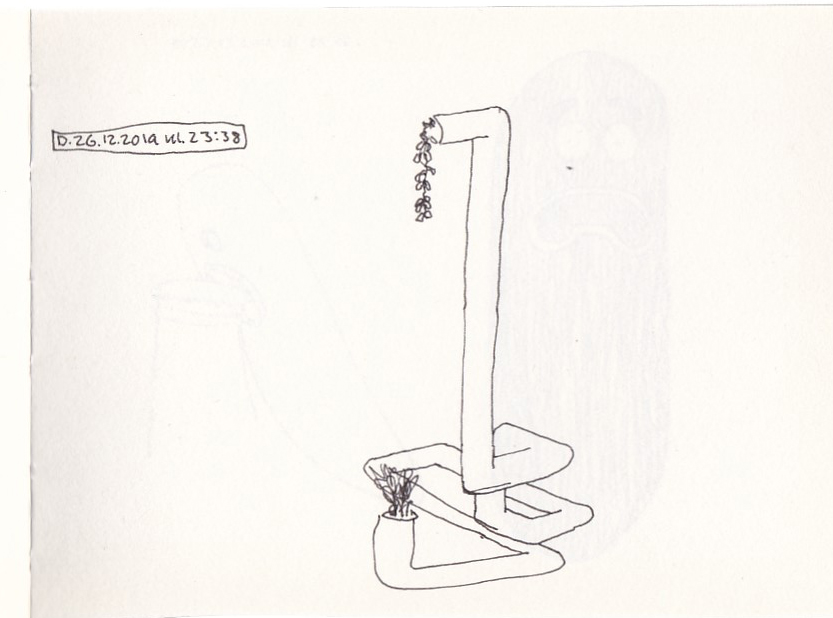 D.26.12.2019 kl.23:38